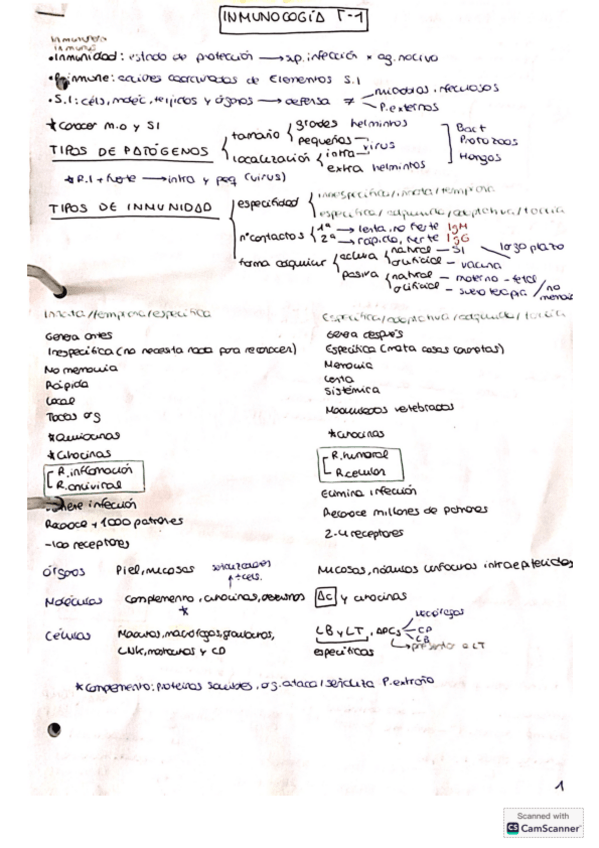 INMUNOLOGÍA T-1
• Inmunidad: estado de protección → xp. infección x ag. nocivo
• R. inmune: acciones coordinadas de elementos S.I
• S.I: céls, moléc, tejidos y órganos → defensa ≠ microbios infecciosos
P. externos
* Conocer m.o y SI
TIPOS DE PATÓGENOS
tamaño
grandes helmintos
pequeños — virus
localización
intra
extra helmintos
Bact
Protozoos
Hongos
* R.I + fuerte → intra y peq (virus)
TIPOS DE INMUNIDAD
especificidad
inespecífica/innata/temprana
específica/adquirida/adaptativa/tardía
nº contactos
1ª → lenta, no fuerte IgM
2ª → rápida, fuerte IgG
forma adquirir
activa
natural — SI
artificial — vacuna
largo plazo
pasiva
natural — materno-fetal
artificial — sueroterapia
/no memoria
Innata/temprana/especifica
Genera antes
Inespecífica (no necesita nada para reconocer)
No memoria
Rápida
Local
Todos org
* Quimiocinas
* Citocinas
R. inflamación
R. antiviral
infección
Reconoce + 1000 patrones
~100 receptores
Específica/adaptativa/adquirida/tardía
Genera después
Específica (mata cosas concretas)
Memoria
Lenta
Sistémica
Mandibulados vertebrados
* Citocinas
R. humoral
R. celular
Elimina infección
Reconoce millones de patrones
2-4 receptores
Órganos Piel, mucosas Mucosas, nódulos linfocitos intraepiteliales
señalizadores
↑ céls.
Moléculas Complemento, citocinas, Ac y citocinas
*
Células macrófagos, granulocitos, LB y LT, APCs
CD
LB
→ presentar a LT
LNK, mastocitos y CD específicas
* Complemento: proteínas solubles, og. ataca/señaliza P. extraño
1
Scanned with
CS CamScanner